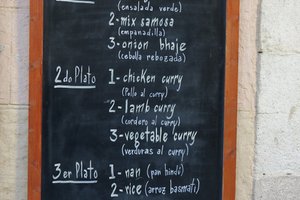 (ensalada verde)
2-mix samosa
(empanadilla)
3-onion bhaje
(cebolla rebozada)
2do Plato 1-chicken curry
(Pollo al curry)
2-lamb curry
(cordero al curry)
3-vegetable curry
(verduras al curry)
3er Plato 1-nan (pan hindú)
2-rice (arroz basmati)